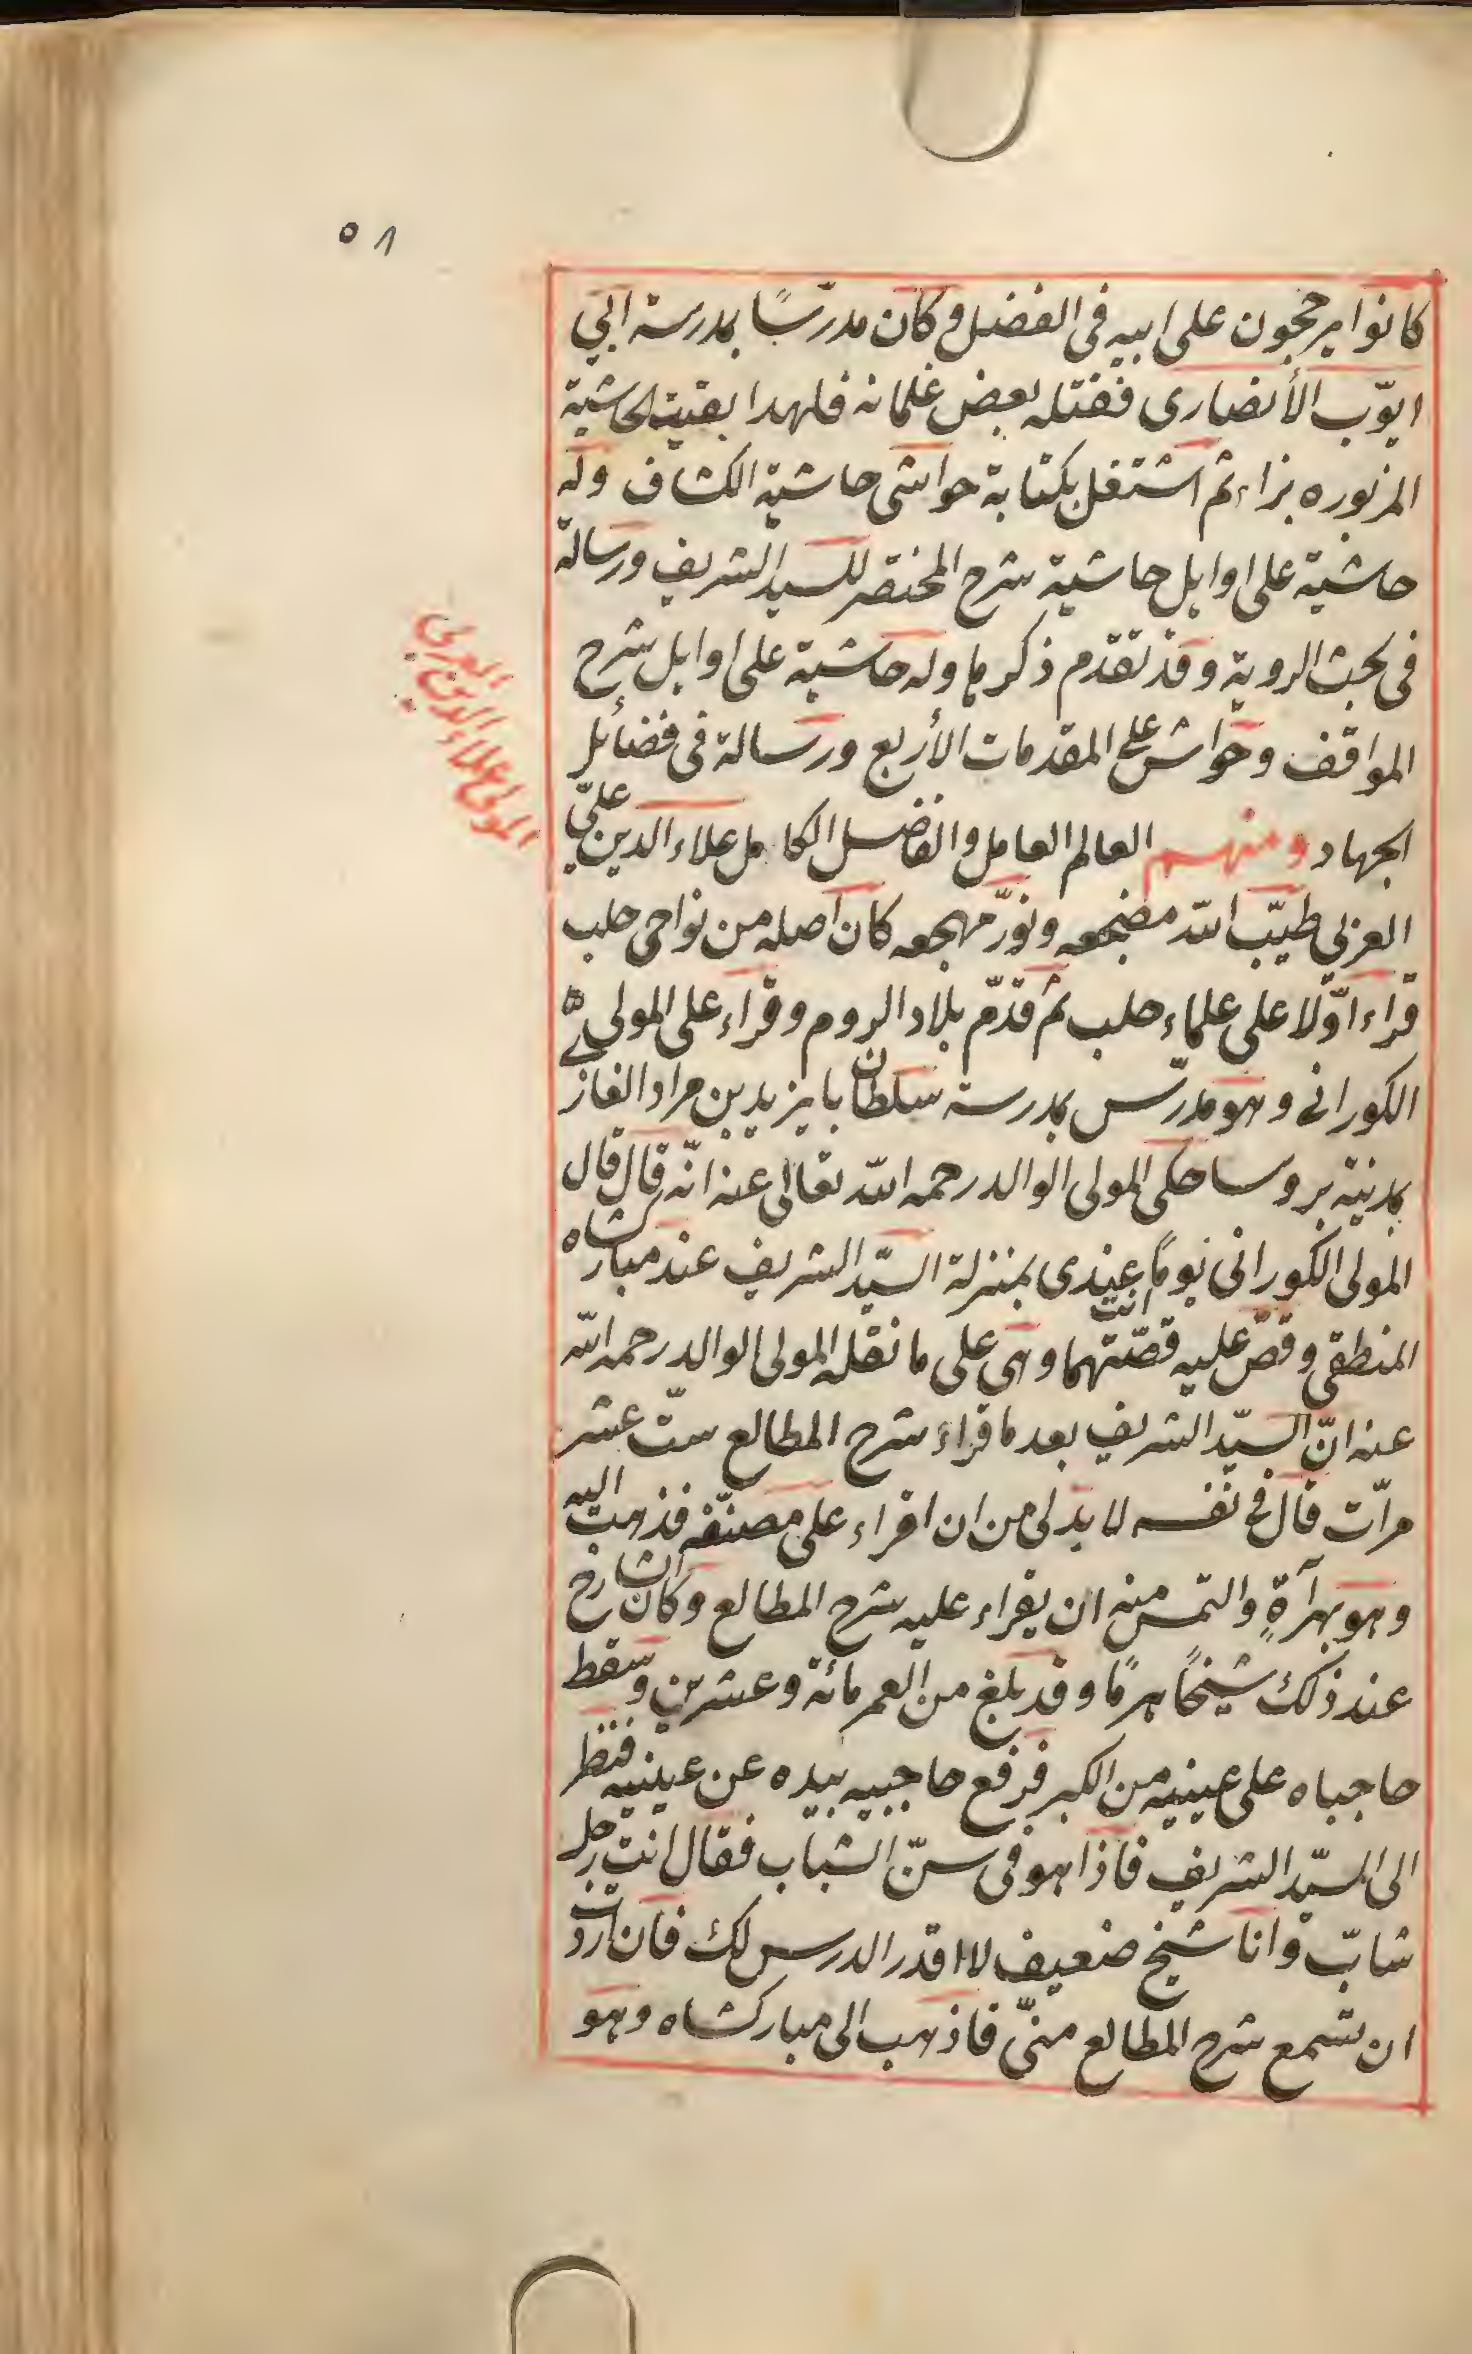 ٥٨
كانوا يرجحون على ابيه فى الفضل وكان مدرّسًا بمدرسة ابي
ايوّب الأنصارى فقتله بعض غلمانه فلهدا بقيت الحاشية
المزبوره بزاء ثم اشتغل بكتابة حواشى حاشية الكشاف وله
حاشية على اوايل حاشية شرح المختصر للسيد الشريف ورسالة
فى بحث الروية وقد تقدم ذكرها وله حاشية على اوايل شرح
المواقف وحواش على المقدمات الأربع ورسالة فى فضائل
الجهاد ومنهم العالم العامل والفاضل الكامل علاء الدين علىّ
العربي طيّب الله مضجعه ونوّر مهجعه كان اصله من نواحى حلب
قراء اوّلا على علماء حلب ثم قدّم بلاد الروم وقراء على المولى
الكورانى وهو مدرّس بمدرسة سلطان بايزيد بن مراد الغاز
بمدينة بروسا حكى المولى الوالد رحمه الله تعالى عنه انّه قال قال
المولى الكورانى يومًا انت عندى بمنزلة السيّد الشريف عند مباركشاه
المنطقى وقصّ عليه قصّتهما وهى على ما نقله المولى الوالد رحمه الله
عنه انّ السيّد الشريف بعد ما قراء شرح المطالع ستّ عشر
مرّات قال فى نفسه لا بد لى من ان اقراء على مصنّفه فذهب اليه
وهو بهرآةٍ والتمس منه ان يقراء عليه شرح المطالع وكان الشارح
عند ذلك شيخًا هرمًا وقد بلغ من العمر مائة وعشرين وسقط
حاجباه على عينيه من الكبر فرفع حاجبيه بيده عن عينيه فنظر
الى السيّد الشريف فاذا هو فى سنّ الشباب فقال انت رجل
شابّ وانا شيخ ضعيف لا اقدر الدرس لك فان اردت
ان تسمع شرح المطالع منّى فاذهب الى مباركشاه وهو
المولى علاء الدين العربى